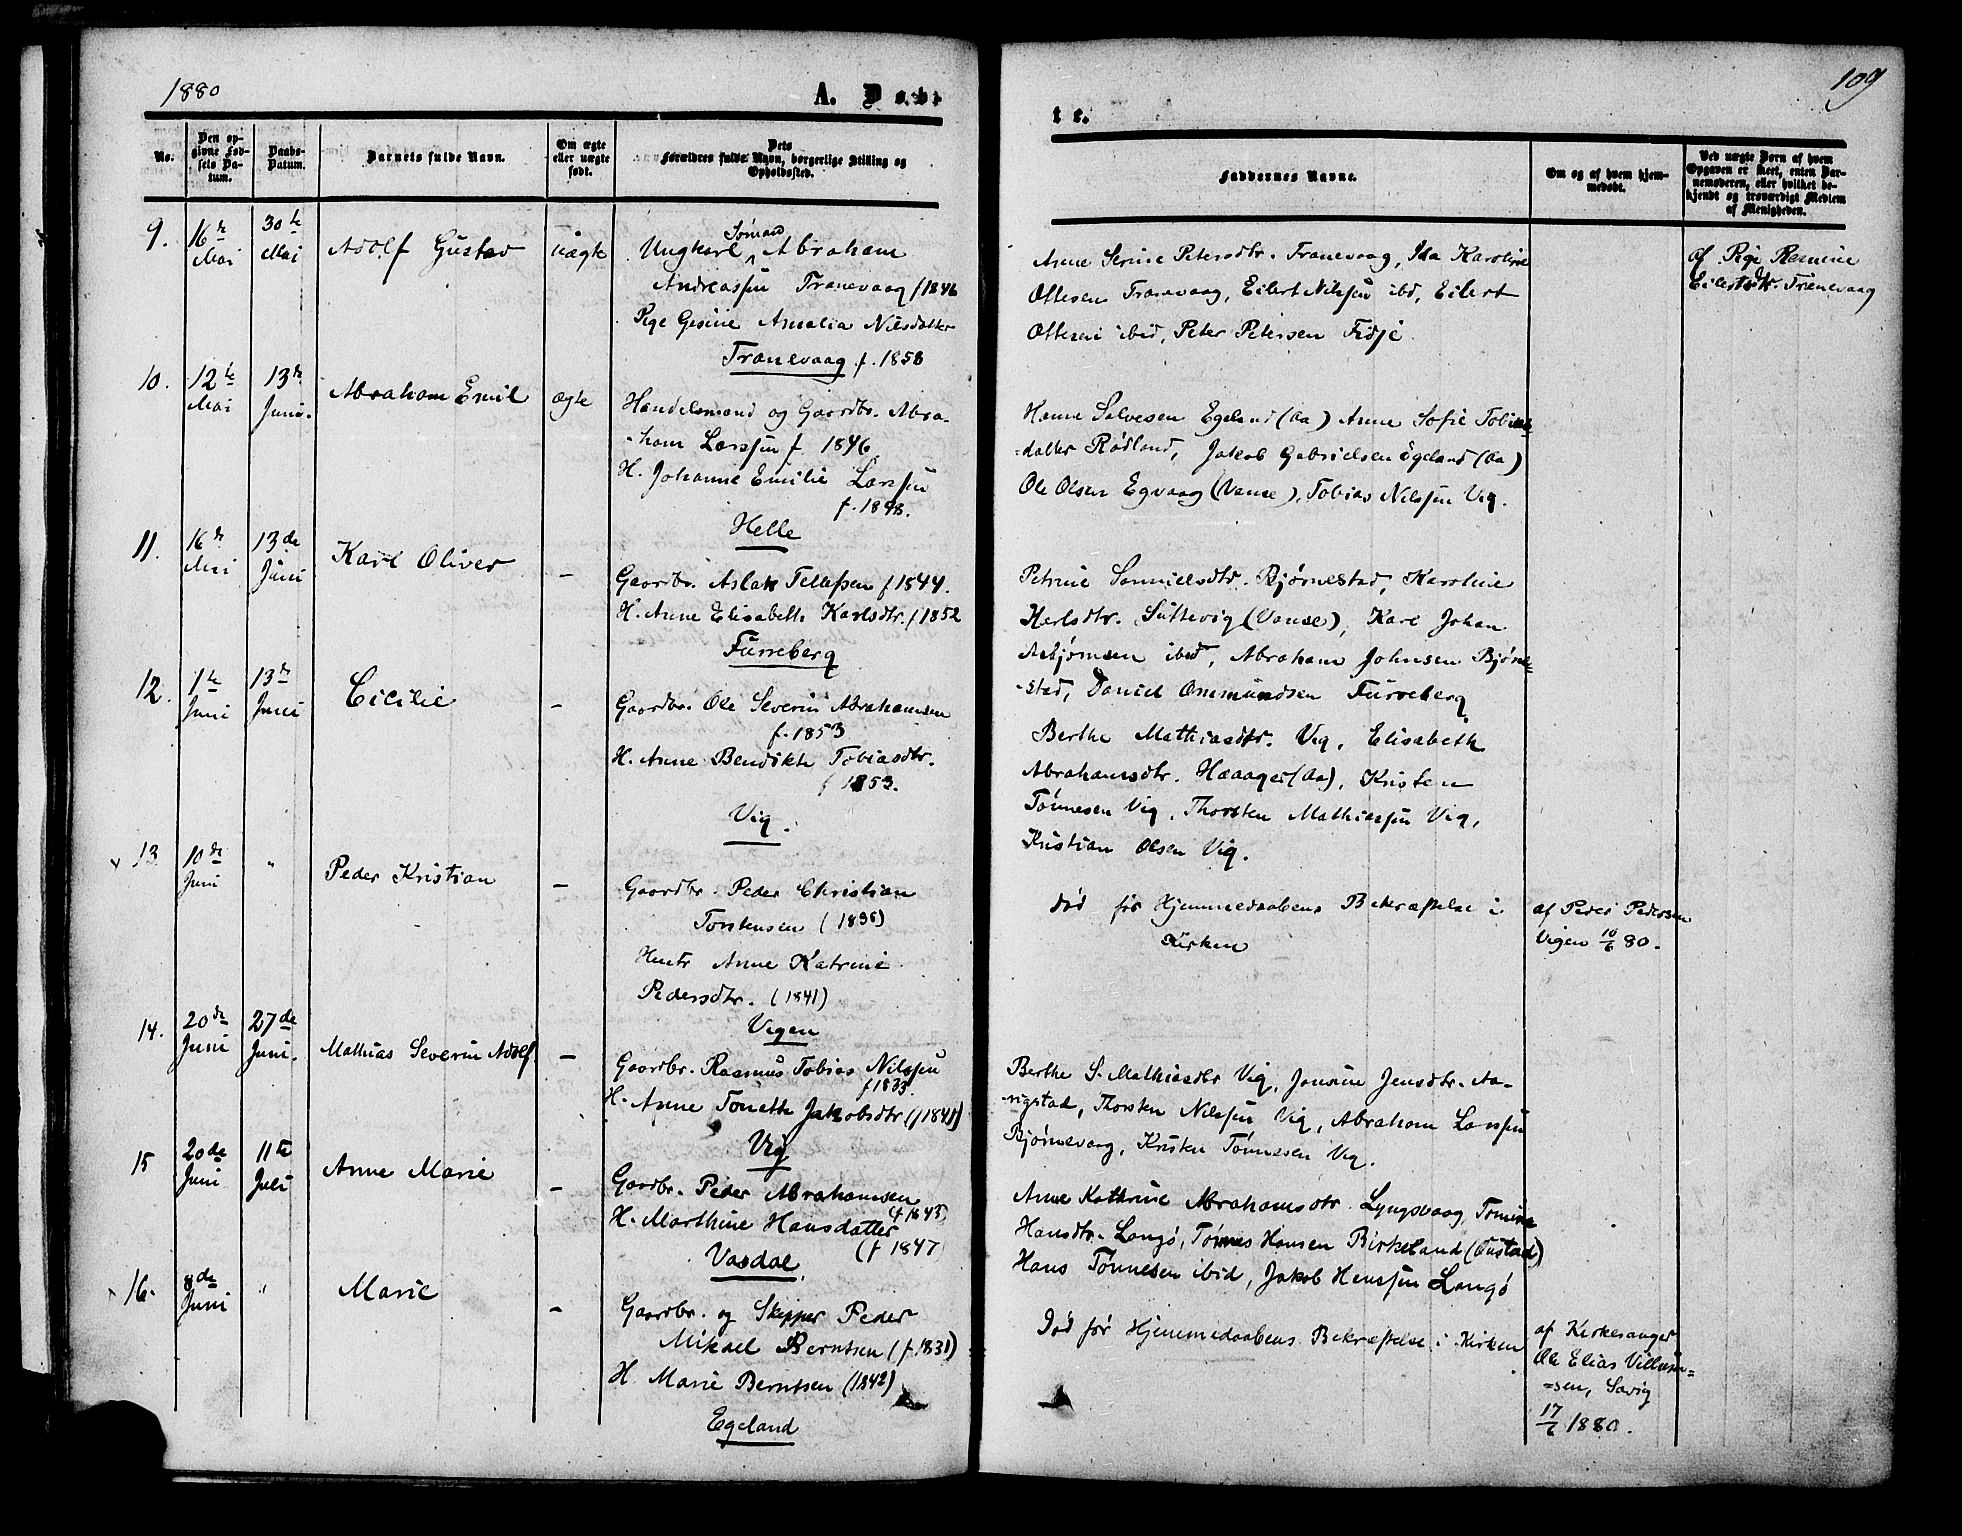 1880
A. Døbte.
109
No.
Den opgivne Fødsels Datum.
Daabs-Datum.
Barnets fulde Navn.
Om ægte eller uægte født.
Dets Forældres fulde Navn, borgerlige Stilling og Opholdssted.
Faddernes Navne.
Om og af hvem hjemmedøbt.
Ved uægte Børn af hvem Opgaven er skeet, enten Barnemoderen, eller hvilket bekjendt og troværdigt Medlem af Menigheden.
9. 16de Mai 30te Mai Adolf Gustav uægte
Ungkarl Sømand Abraham
Andreassen Tranevaag f 1846
Pige Gesine Amalia Nilsdatter
Tranevaag f. 1858
Anne Serine Petersdtr. Tranevaag, Ida Karoline
Ottesen Tranevaag, Eilert Nilssen ibd, Eilert
Ottesen ibid, Peter Petersen Fidje
af Pige Rasmine
Eilertsdtr. Tranevaag
10. 12te Mai 13de Juni. Abraham Emil ægte
Handelsmand og Gaardbr. Abra-
-ham Larssen f 1846
H. Johanne Emilie Larssen
f. 1848.
Helle
Hanne Salvesen Egeland (Aa) Anne Sofie Tobias-
-datter Rødland, Jakob Gabrielsen Egeland (Aa)
Ole Olsen Egvaag (Vanse), Tobias Nilssen Vig.
11. 16de Mai 13de Juni Karl Oliver -
Gaardbr. Aslak Tellefsen f 1844.
H. Anne Elisabeth Karlsdtr. f 1852
Furreberg
Petrine Samuelsdtr. Bjørnestad, Karoline
Karlsdtr. Sultevig (Vanse), Karl Johan
Asbjørnsen ibid, Abraham Johnsen Bjørne-
-stad, Daniel Ommundsen Furreberg
12. 1te Juni 13de Juni Cicilie -
Gaardbr. Ole Severin Abrahamsen
f. 1853
H. Anne Bendikte Tobiasdtr.
f 1853.
Vig.
Berthe Mathiasdtr. Vig, Elisabeth
Abrahamsdtr. (Aa), Kristen
Tønnesen Vig, Thorsten Mathiassen Vig,
Kristian Olsen Vig.
13 10de Juni " Peder Kristian -
Gaardbr. Peder Christian
Torstensen (1836)
Hustr Anne Katrine
Pedersdtr. (1841)
Vegen
død før Hjemmedaabens Bekræftelse i
Kirken
af Peder Pedersen
Vigen 10/6 80.
14. 20de Juni 27de Juni. Mathias Severin Adolf -
Gaardbr. Rasmus Tobias Nilssen
f 1833.
H. Anne Tonette Jakobsdtr (f 1841)
Vig
Berthe S. Mathiasdtr Vig, Jensine Jensdtr. Aa-
-rigstad, Thorsten Nilssen Vig, Abraham Larssen
Bjørnevaag, Kristen Tønnesen Vig.
15 20de Juni 11te Juli Anne Marie -
Gaardbr. Peder Abrahamsen
(f 1843)
H. Marthine Hansdatter
(f 1847)
Vasdal
Anne Kathrine Abrahamsdtr. Lyngsvaag, Tomine
Hansdtr. Langø, Tønnes Hansen Birkeland (Øustad)
Hans Tønnesen ibid, Jakob Hanssen Langø
16. 8de Juni " Marie -
Gaardbr. og Skipper Peder
Mikael Berntsen (f. 1831)
H. Marie Berntsen (1842)
Egeland
Død før Hjemmedaabens Bekræftelse i Kirken
af Kirkesanger
Ole Elias Villum-
-sen, Savig
17/6 1880.